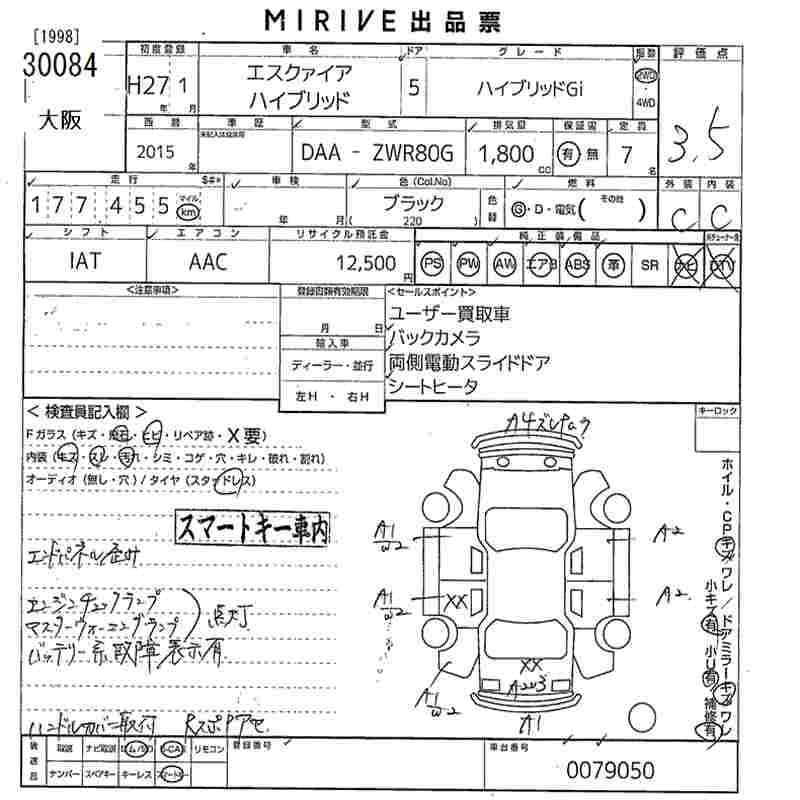 MIRIVE 出品票
[1998]
30084
大阪
初度登録 車名 ドア グレード 駆動 評価点
H27 1 エスクァイア ハイブリッド 5 ハイブリッドGi 2WD・4WD 3.5
年 月
西暦 車歴 型式 排気量 保証書 定員
未記入は自家用
2015年 DAA - ZWR80G 1,800cc 有・無 7名
走行 $#* 車検 色(Col.No) 色替 燃料 外装 内装
177455 マイル km 年 月 ブラック (220) G・D・電気( その他 ) C C
シフト エアコン リサイクル預託金 純正装備品
IAT AAC 12,500円 PS PW AW エアB ABS 革 SR ナビ DTV
<注意事項> 登録書類有効期限 <セールスポイント>
月 日 ユーザー買取車
輸入車 バックカメラ
ディーラー・並行 両側電動スライドドア
左H・右H シートヒータ
キーロック
<検査員記入欄>
Fガラス(キズ・飛石・ヒビ・リペア跡・X要)
内装(キズ・スレ・汚れ・シミ・コゲ・穴・キレ・破れ・割れ)
オーディオ(無し・穴)/タイヤ(スタッドレス)
スマートキー車内
エンドパネル歪み
エンジンチェックランプ
マスターウォーニングランプ 点灯
バッテリー系故障表示有
ハンドルカバー取付
A1 W2
A2
A1 W2
XX
A2
XX
A1 W2
A1
ホイル・CPキズワレ/ドアミラーキズワレ
小キズ有 小U有 補修有
後送品 取説 ナビ取説 リモコン 登録番号 車台番号
ナンバー スペアキー キーレス スマートキー 0079050